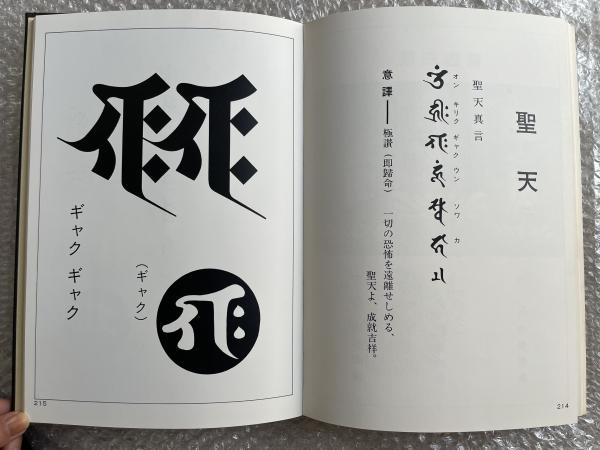 聖天
聖天真言
オン キリク ギャク ウン ソワ カ
意譯――極讃(即歸命) 一切の恐怖を遠離せしめる、
聖天よ、成就吉祥。
214
ギャク ギャク
(ギャク)
215